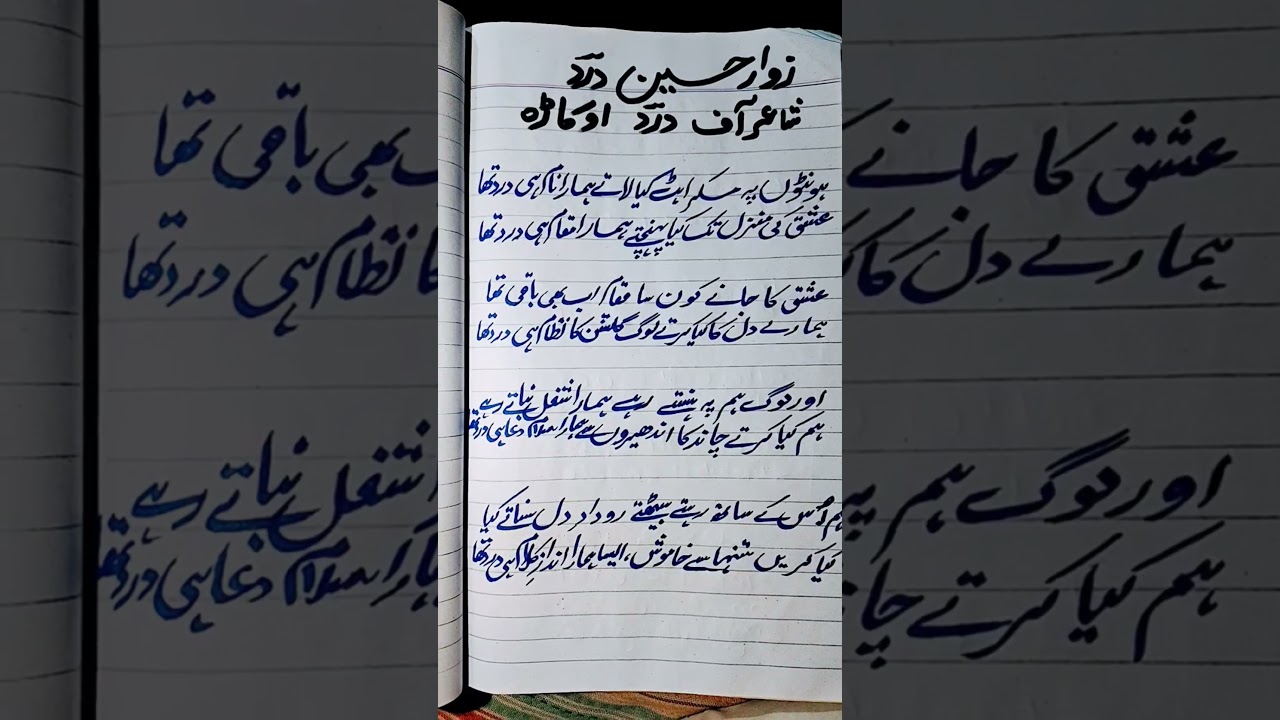 زوار حسین درد
شاعر آف درد اوکاڑہ
ہونٹوں پہ مسکراہٹ کیا لاتے ہمارا نام ہی درد تھا
عشق کی منزل تک کیا پہنچتے ہمارا مقام ہی درد تھا
عشق کا جانے کون سا مقام اب بھی باقی تھا
ہمارے دل کا کیا کرتے لوگ گلشن کا نظام ہی درد تھا
اور لوگ ہم پہ ہنستے رہے ہمارا شغل بناتے رہے
ہم کیا کرتے چاند کا اندھیروں سے ہمارا سلام دعا ہی درد تھا
ہم اُس کے ساتھ رہتے بیٹھتے رودادِ دل سناتے کیا
کیا کریں تنہا سے خاموش، ایسا ہمارا اندازِ کلام ہی درد تھا